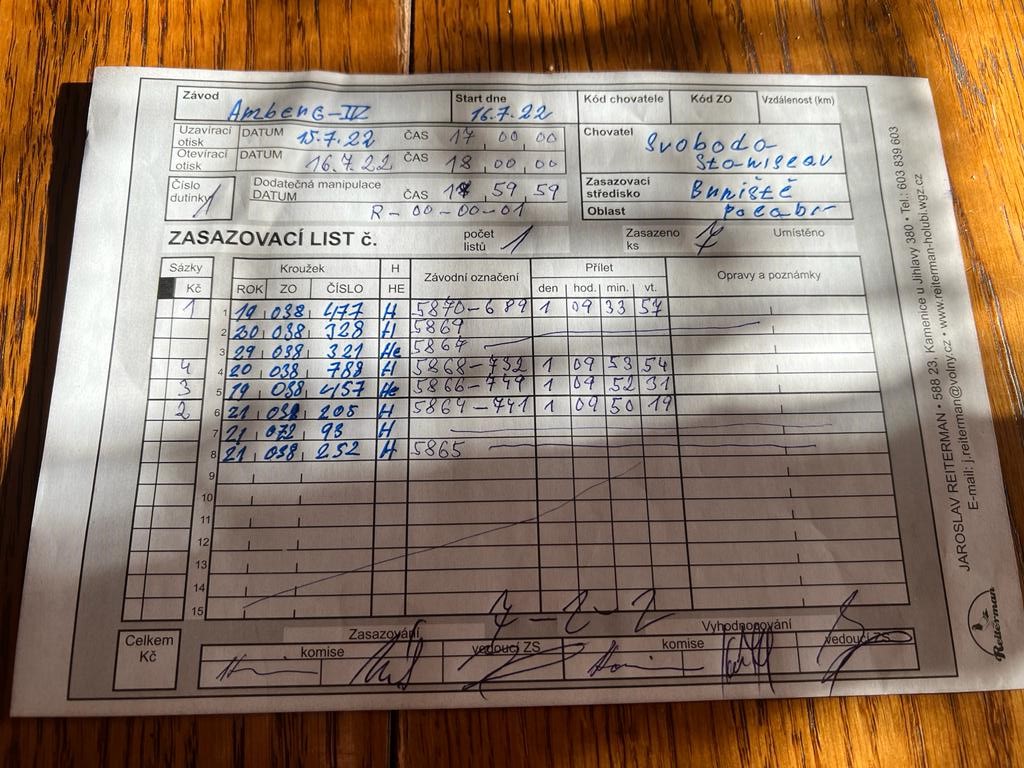 Závod Amberg-IV Start dne 16.7.22 Kód chovatele Kód ZO Vzdálenost (km)
Uzavírací otisk DATUM 15.7.22 ČAS 17 00 00
Otevírací otisk DATUM 16.7.22 ČAS 18 00 00
Chovatel Svoboda
Stanislav
Číslo dutinky 1 Dodatečná manipulace
DATUM ČAS 59 59
R-00-00-01
Zasazovací středisko Buniště
Oblast Polabí
ZASAZOVACÍ LIST č. počet listů 1 Zasazeno ks 7 Umístěno
Sázky Kroužek H Závodní označení Přílet Opravy a poznámky
Kč ROK ZO ČÍSLO HE den hod. min. vt.
1 1 19 038 477 H 5870-689 1 09 33 57
2 20 038 328 H 5869
3 038 321 He 5867
4 4 20 038 788 H 5868-732 1 09 53 54
3 5 19 038 457 He 5866-749 1 09 52 31
2 6 21 038 205 H 5864-741 1 09 50 19
7 21 072 93 H
8 21 038 252 H 5865
9
10
11
12
13
14
15
7-2-2
Celkem Kč Zasazování Vyhodnocování
komise vedoucí ZS komise vedoucí ZS
JAROSLAV REITERMAN • 588 23, Kamenice u Jihlavy 380 • Tel.: 603 839 603
E-mail: j.reiterman@volny.cz • www.reiterman-holubi.wgz.cz
Reiterman